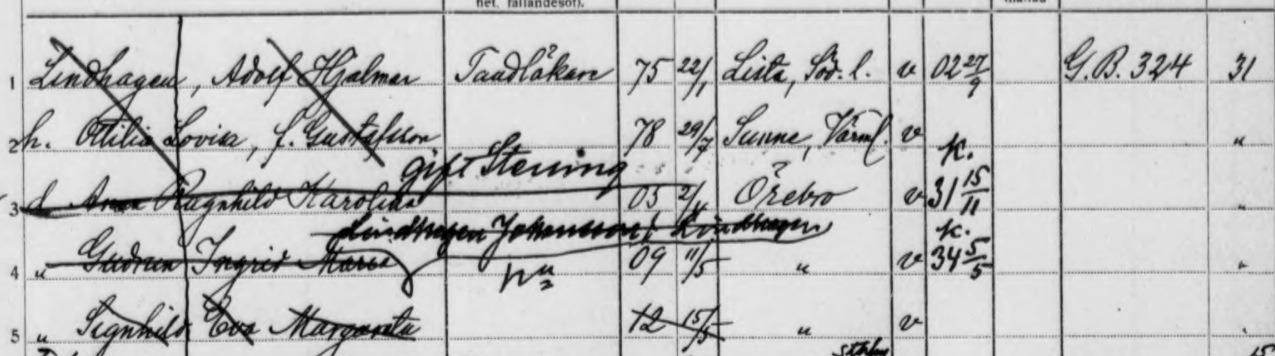 het, fallandesot).
1 Lindhagen, Adolf Hjalmar Tandläkare 75 22/1 Lista, Söd. l. v 02 27/9 G.B. 324 31
2 h. Ottilia Lovisa, f. Gustafsson 78 29/7 Sunne, Värml. v "
gift Stening k.
3 d. Anna Ragnhild Karolina 03 2/4 Örebro v 31 15/11 "
Lindhagen Johansson f. Lindhagen k.
4 " Gudrun Ingrid Maria 09 11/5 " v 34 5/5 "
5 " Signhild Eva Margareta 12 15/5 " v "
Sthlm 15